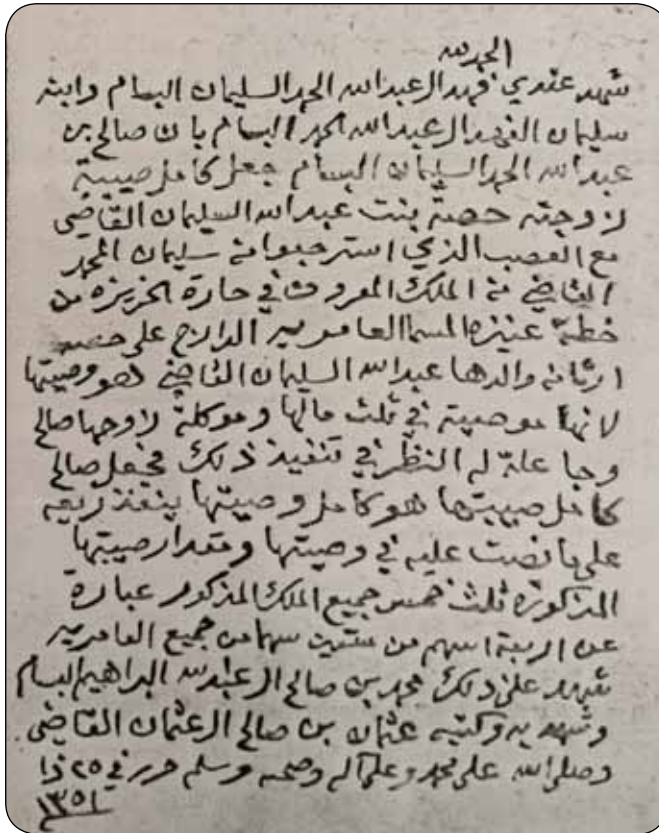 الحمد لله
شهد عندي فهد العبد الله الحمد السليمان البسام وابنه
سليمان الفهد العبد الله الحمد البسام بان صالح بن
عبد الله الحمد السليمان البسام جعل كامل صيبة
زوجته حصة بنت عبد الله السليمان القاضي
مع العصب الذي استرجعوا منه سليمان المحمد
القاضي من الملك المعروف في حارة الخريزه من
خطة عنيزه المسما العامريه الدارج على حصه
ارثا من والدها عبد الله السليمان القاضي هو وصيتها
لانها موصيته في ثلث مالها وموكلة زوجها صالح
وجاعلة له النظر في تنفيذ ذلك فجعل صالح
كامل صيبتها هو كامل وصيتها ينفذ ريعه
على ما نصت عليه في وصيتها ومقدار صيبتها
المذكورة ثلث خمس جميع الملك المذكور عبارة
عن اربعة اسهم من ستين سهما من جميع العامريه
شهد على ذلك محمد بن صالح العبد لله البراهيم البسام
وشهد به وكتبه عثمان بن صالح العثمان القاضي
وصلى الله على محمد وعلى آله وصحبه وسلم حرر في ٢٥ ذا
١٣٥١